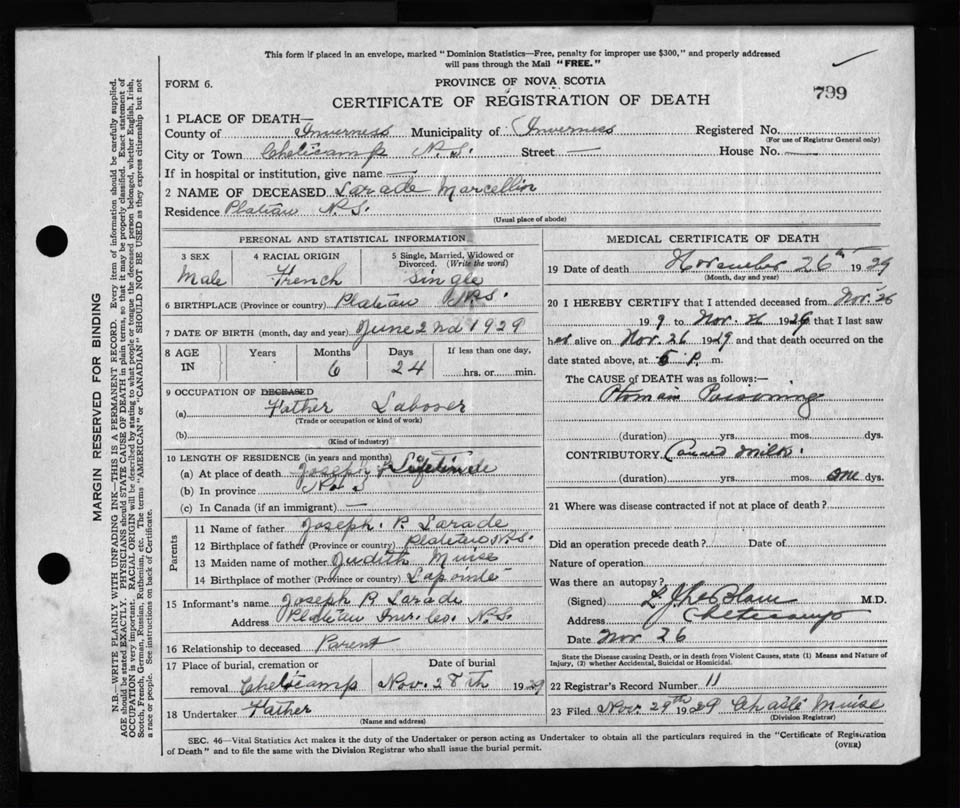 This form if placed in an envelope, marked "Dominion Statistics—Free, penalty for improper use $300," and properly addressed
will pass through the Mail "FREE."
FORM 6.
PROVINCE OF NOVA SCOTIA
799
CERTIFICATE OF REGISTRATION OF DEATH
1 PLACE OF DEATH—
County of Inverness Municipality of Inverness Registered No.
(For use of Registrar General only)
City or Town Cheticamp N.S. Street — House No. —
If in hospital or institution, give name —
2 NAME OF DECEASED Larade Marcellin
Residence Plateau N.S.
(Usual place of abode)
PERSONAL AND STATISTICAL INFORMATION
3 SEX 4 RACIAL ORIGIN 5 Single, Married, Widowed or
Divorced. (Write the word)
Male French Single
6 BIRTHPLACE (Province or country) Plateau N.S.
7 DATE OF BIRTH (month, day and year) June 2nd 1929
8 AGE Years Months Days If less than one day,
IN 6 24 hrs. or min.
9 OCCUPATION OF DECEASED
(a) Father Laborer
(Trade or occupation or kind of work)
(b)
(Kind of industry)
10 LENGTH OF RESIDENCE (in years and months)
(a) At place of death Lifetime
(b) In province
(c) In Canada (if an immigrant) —
Parents
11 Name of father Joseph. P Larade
12 Birthplace of father (Province or country) Plateau N.S.
13 Maiden name of mother Judith Muise
14 Birthplace of mother (Province or country) Lapointe
15 Informant's name Joseph P Larade
Address Plateau Inv. Co. N.S.
16 Relationship to deceased Parent
17 Place of burial, cremation or Date of burial
removal Cheticamp Nov. 28th 1929
18 Undertaker Father
(Name and address)
MEDICAL CERTIFICATE OF DEATH
19 Date of death November 26th 1929
(Month, day and year)
20 I HEREBY CERTIFY that I attended deceased from Nov. 26
199 to Nov. 26 1929 that I last saw
her alive on Nov. 26 1929 and that death occurred on the
date stated above, at 5 P. m.
The CAUSE of DEATH was as follows:—
Ptomain Poisoning
(duration) yrs. mos. dys.
CONTRIBUTORY Canned Milk.
(duration) yrs. mos. one dys.
21 Where was disease contracted if not at place of death?
Did an operation precede death? Date of
Nature of operation
Was there an autopsy?
(Signed) M.D.
Address Cheticamp
Date Nov 26
State the Disease causing Death, or in death from Violent Causes, state (1) Means and Nature of
Injury, (2) whether Accidental, Suicidal or Homicidal.
22 Registrar's Record Number 11
23 Filed Nov 29th 1929 Muise
(Division Registrar)
SEC. 46—Vital Statistics Act makes it the duty of the Undertaker or person acting as Undertaker to obtain all the particulars required in the "Certificate of Registration
of Death" and to file the same with the Division Registrar who shall issue the burial permit.
(OVER)
MARGIN RESERVED FOR BINDING
N.B.—WRITE PLAINLY WITH UNFADING INK—THIS IS A PERMANENT RECORD. Every item of information should be carefully supplied.
AGE should be stated EXACTLY. PHYSICIANS should STATE CAUSE OF DEATH in plain terms, so that it may be properly classified. Exact statement of
OCCUPATION is very important. RACIAL ORIGIN will be described by stating to what people or tongue the deceased person belonged, whether English, Irish,
Scotch, French, German, Russian, Ruthenian, etc. The terms "AMERICAN" or "CANADIAN" SHOULD NOT BE USED as they express citizenship but not
a race or people. See instructions on back of Certificate.